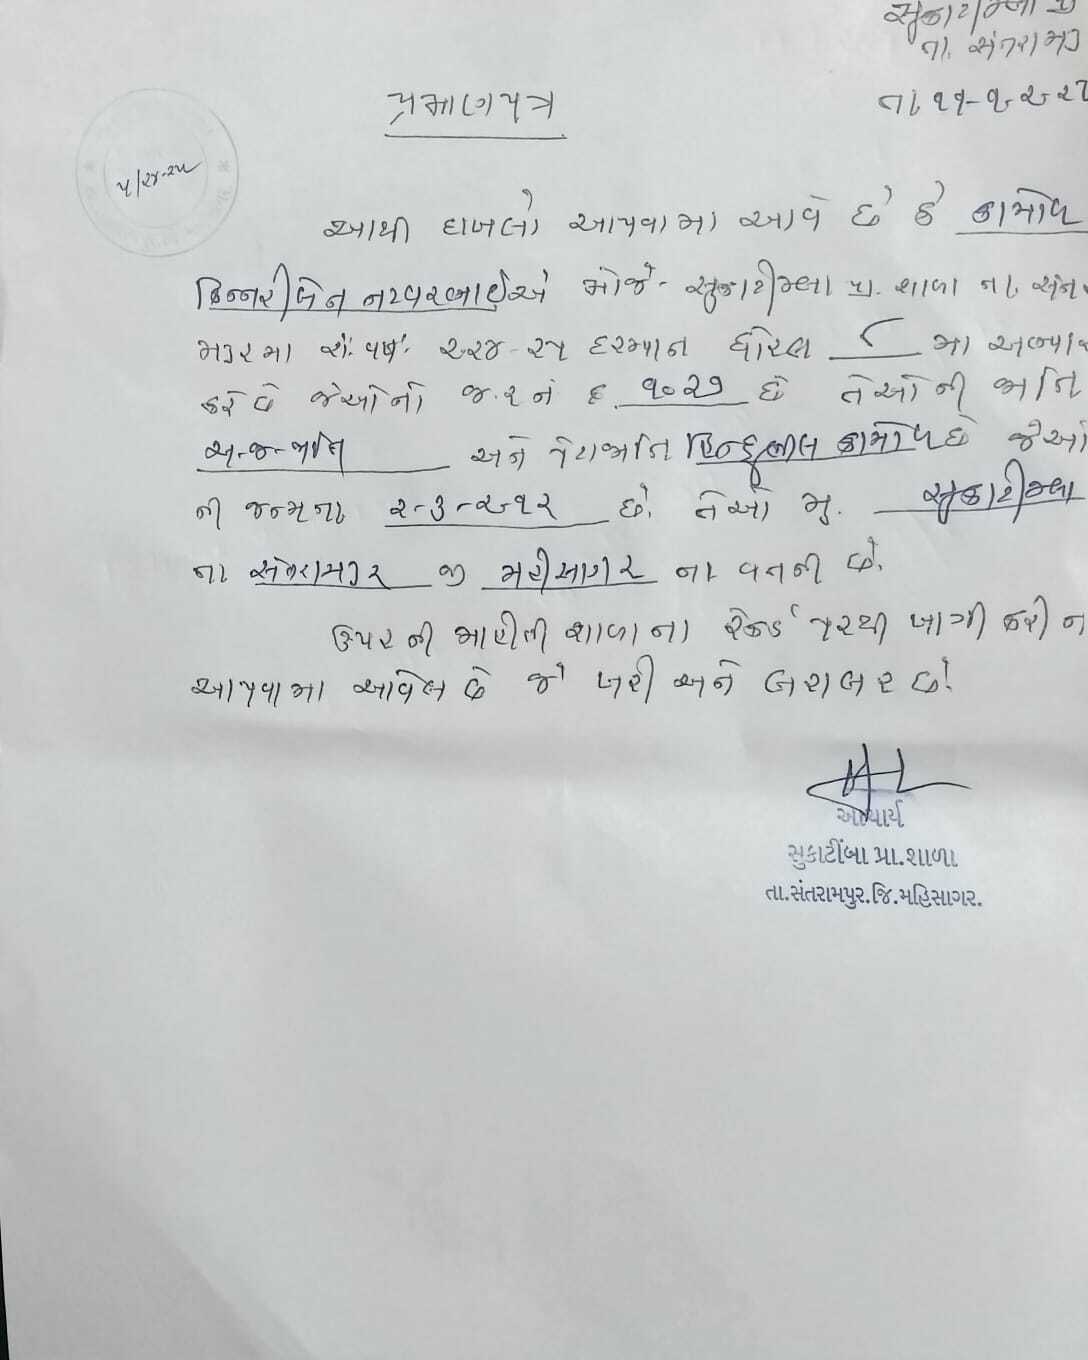 સુકાટીમ્બા પ્રા
તા. સંતરામપુ
તા ૧૧-૧-૨૦૨૫
પ્રમાણપત્ર
૫/૨૪-૨૫
આથી દાખલો આપવામાં આવે છે કે ડામોર
કિન્નરીબેન નટવરભાઈએ મોજે- સુકાટીમ્બા પ્રા. શાળા તા. સંત
પુરમાં શૈ. વર્ષ ૨૦૨૪-૨૫ દરમ્યાન ધોરણ ૮ માં અભ્યાસ
કરે છે જેઓનો જ.ર.નં ૬ ૧૦૨૭ છે તેઓની જાતિ
અ-જ-જાતિ અને પેટાજાતિ હિન્દુભીલ ડામોર છે જેઓ
ની જન્મ તા ૨-૩-૨૦૧૨ છે. તેઓ મુ. સુકાટીમ્બા
તા સંતરામપુર જી મહીસાગર ના વતની છે.
ઉપરની માહીતી શાળાના રેકર્ડ પરથી ખાત્રી કરીને
આપવામાં આવેલ છે જે ખરી અને બરાબર છે.
આચાર્ય
સુકાટીંબા પ્રા.શાળા
તા.સંતરામપુર.જિ.મહિસાગર.